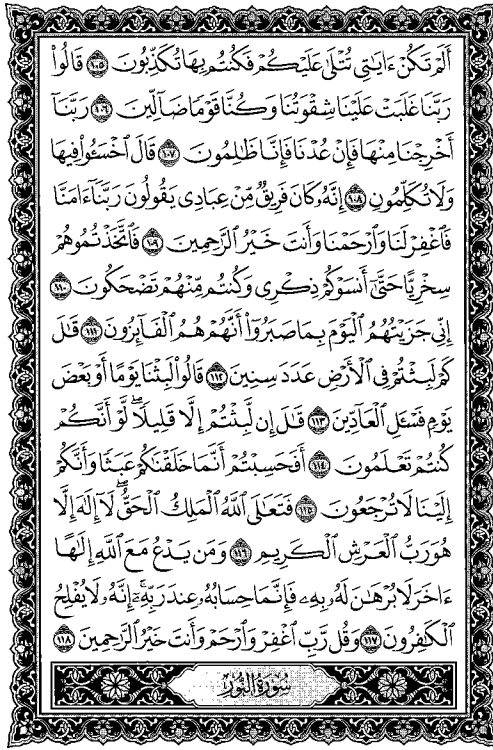 أَلَمْ تَكُنْ ءَايَـٰتِى تُتْلَىٰ عَلَيْكُمْ فَكُنتُم بِهَا تُكَذِّبُونَ ١٠٥ قَالُوا۟
رَبَّنَا غَلَبَتْ عَلَيْنَا شِقْوَتُنَا وَكُنَّا قَوْمًا ضَآلِّينَ ١٠٦ رَبَّنَآ
أَخْرِجْنَا مِنْهَا فَإِنْ عُدْنَا فَإِنَّا ظَـٰلِمُونَ ١٠٧ قَالَ ٱخْسَـُٔوا۟ فِيهَا
وَلَا تُكَلِّمُونِ ١٠٨ إِنَّهُۥ كَانَ فَرِيقٌ مِّنْ عِبَادِى يَقُولُونَ رَبَّنَآ ءَامَنَّا
فَٱغْفِرْ لَنَا وَٱرْحَمْنَا وَأَنتَ خَيْرُ ٱلرَّٰحِمِينَ ١٠٩ فَٱتَّخَذْتُمُوهُمْ
سِخْرِيًّا حَتَّىٰٓ أَنسَوْكُمْ ذِكْرِى وَكُنتُم مِّنْهُمْ تَضْحَكُونَ ١١٠
إِنِّى جَزَيْتُهُمُ ٱلْيَوْمَ بِمَا صَبَرُوٓا۟ أَنَّهُمْ هُمُ ٱلْفَآئِزُونَ ١١١ قَـٰلَ
كَمْ لَبِثْتُمْ فِى ٱلْأَرْضِ عَدَدَ سِنِينَ ١١٢ قَالُوا۟ لَبِثْنَا يَوْمًا أَوْ بَعْضَ
يَوْمٍ فَسْـَٔلِ ٱلْعَآدِّينَ ١١٣ قَـٰلَ إِن لَّبِثْتُمْ إِلَّا قَلِيلًا ۖ لَّوْ أَنَّكُمْ
كُنتُمْ تَعْلَمُونَ ١١٤ أَفَحَسِبْتُمْ أَنَّمَا خَلَقْنَـٰكُمْ عَبَثًا وَأَنَّكُمْ
إِلَيْنَا لَا تُرْجَعُونَ ١١٥ فَتَعَـٰلَى ٱللَّهُ ٱلْمَلِكُ ٱلْحَقُّ ۖ لَآ إِلَـٰهَ إِلَّا
هُوَ رَبُّ ٱلْعَرْشِ ٱلْكَرِيمِ ١١٦ وَمَن يَدْعُ مَعَ ٱللَّهِ إِلَـٰهًا
ءَاخَرَ لَا بُرْهَـٰنَ لَهُۥ بِهِۦ فَإِنَّمَا حِسَابُهُۥ عِندَ رَبِّهِۦٓ ۚ إِنَّهُۥ لَا يُفْلِحُ
ٱلْكَـٰفِرُونَ ١١٧ وَقُل رَّبِّ ٱغْفِرْ وَٱرْحَمْ وَأَنتَ خَيْرُ ٱلرَّٰحِمِينَ ١١٨
سُورَةُ النُّورِ